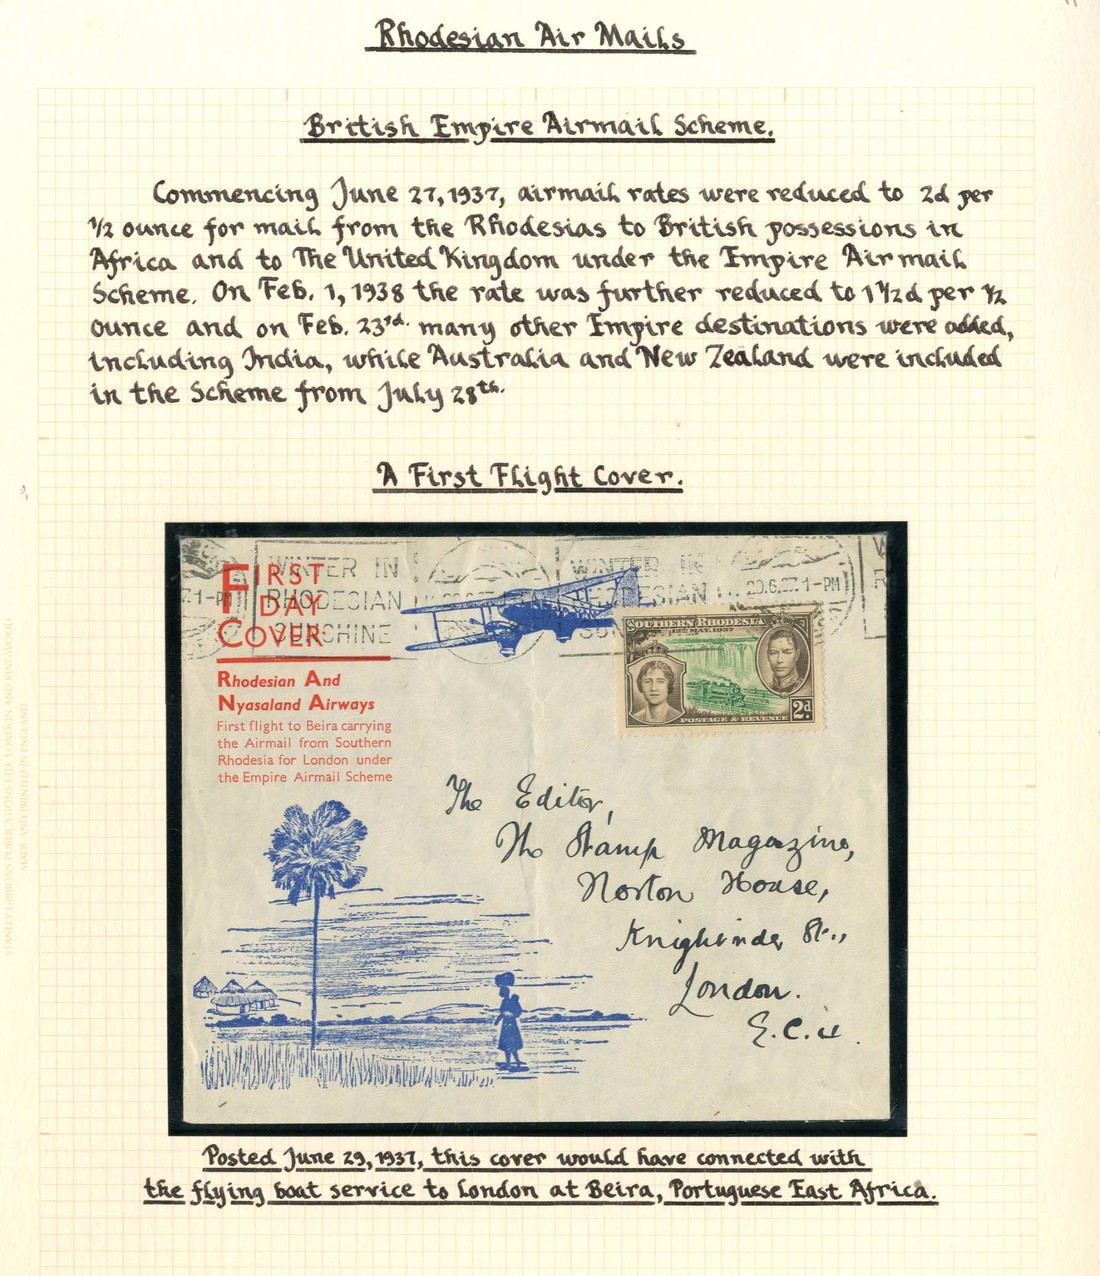 Rhodesian Air Mails
British Empire Airmail Scheme.
Commencing June 27, 1937, airmail rates were reduced to 2d per
1/2 ounce for mail from the Rhodesias to British possessions in
Africa and to The United Kingdom under the Empire Air mail
Scheme. On Feb. 1, 1938 the rate was further reduced to 1 1/2d per 1/2
ounce and on Feb. 23rd. many other Empire destinations were added,
including India, while Australia and New Zealand were included
in the Scheme from July 28th.
A First Flight Cover.
WINTER IN
RHODESIAN
SUNSHINE
WINTER IN
RHODESIAN
7.1-PM
1-PM
FIRST
DAY
COVER
Rhodesian And
Nyasaland Airways
First flight to Beira carrying
the Airmail from Southern
Rhodesia for London under
the Empire Airmail Scheme
SOUTHERN RHODESIA
12TH MAY, 1937
2d
POSTAGE & REVENUE
The Editor,
The Stamp Magazine,
Norton House,
London.
E.C.4.
Posted June 29, 1937, this cover would have connected with
the flying boat service to London at Beira, Portuguese East Africa.
STANLEY GIBBONS PUBLICATIONS LTD. LONDON AND RINGWOOD
MADE AND PRINTED IN ENGLAND